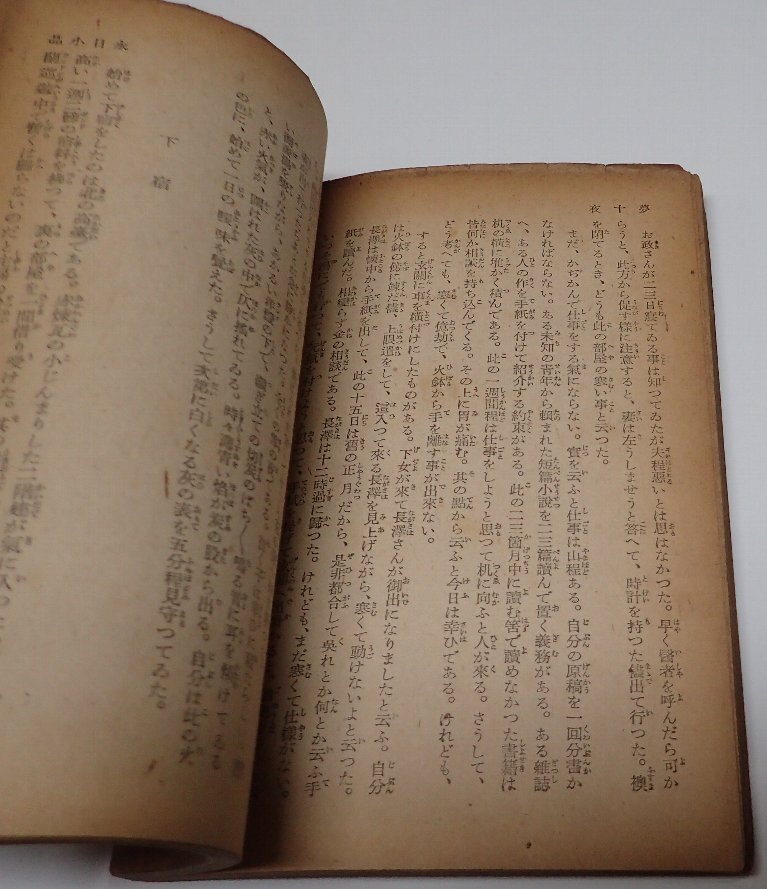 夢十夜
お政さんが二三日寝てゐる事は知つてゐたが夫程悪いとは思はなかつた。早く醫者を呼んだら可か
らうと、此方から促す樣に注意すると、妻は左うしませうと答へて、時計を持つた儘出て行つた。襖
を閉てるとき、どうも此の部屋の寒い事と云つた。
まだ、かぢかんで仕事をする氣にならない。實を云ふと仕事は山程ある。自分の原稿を一回分書か
なければならない。ある未知の青年から頼まれた短篇小說を二三篇讀んで置く義務がある。ある雜誌
へ、ある人の作を手紙を付けて紹介する約束がある。此の二三箇月中に讀む筈で讀めなかつた書籍は
机の横に堆かく積んである。此の一週間程は仕事をしようと思つて机に向ふと人が來る。さうして、
皆何か相談を持ち込んでくる。その上に胃が痛む。其の點から云ふと今日は幸ひである。けれども、
どう考へても、寒くて億劫で、火鉢から手を離す事が出來ない。
すると玄關に車を横付けにしたものがある。下女が來て長澤さんが御出になりましたと云ふ。自分
は火鉢の傍に竦んだ儘、上眼遣をして、這入つて來る長澤を見上げながら、寒くて動けないよと云つた。
長澤は懷中から手紙を出して、此の十五日は舊の正月だから、是非都合して吳れとか何とか云ふ手
紙を讀んだ。相變らず金の相談である。長澤は十二時過に歸つた。けれども、まだ寒くて仕樣がない。
永日小品
と、赤い火氣が、圍はれた灰の中で仄に搖れてゐる。時々薄青い焰が灰の股から出る。自分は此の火
の色に、始めて一日の暖味を覺えた。さうして次第に白くなる灰の表を五分程見守つてゐた。
下宿
始めて下宿をしたのは北の高臺である。赤煉瓦の小じんまりした二階建が氣に入つた
高い一週二磅の宿料を拂つて、裏の部屋を一間借り受けた。